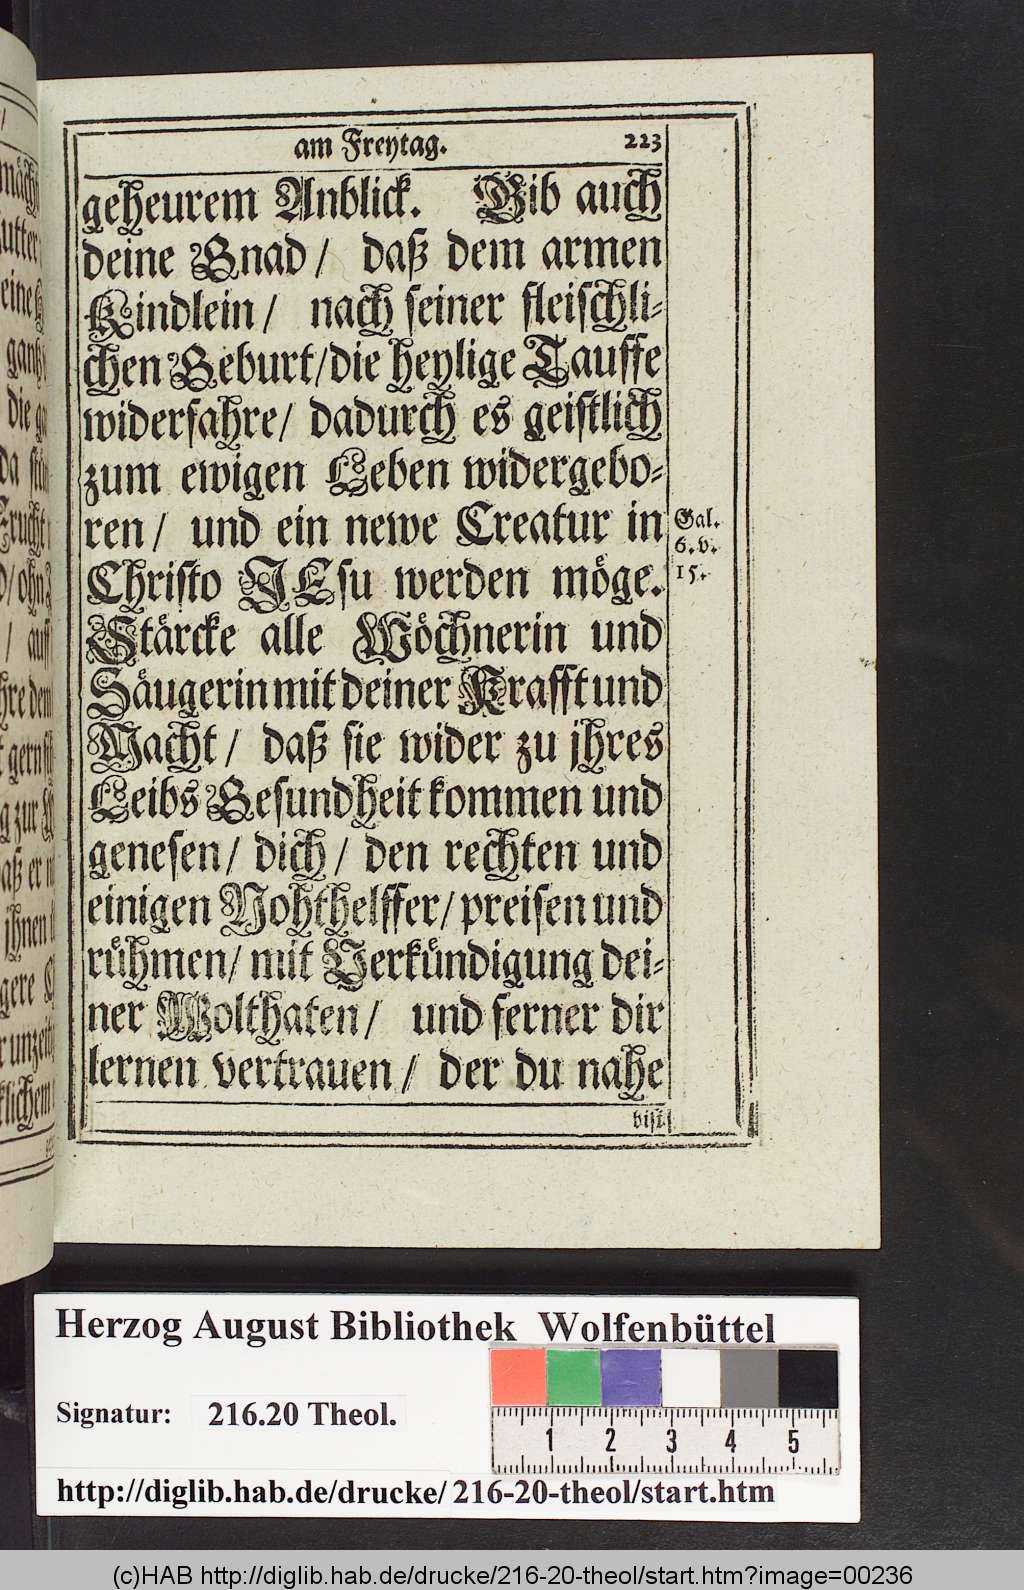 am Freytag.
223
geheurem Anblick. Gib auch
deine Gnad / daß dem armen
Kindlein / nach seiner fleischli-
chen Geburt / die heylige Tauffe
widerfahre / dadurch es geistlich
zum ewigen Leben widergebo-
ren / und ein newe Creatur in
Christo JEsu werden möge.
Stärcke alle Wöchnerin und
Säugerin mit deiner Krafft und
Macht / daß sie wider zu jhres
Leibs Gesundheit kommen und
genesen / dich / den rechten und
einigen Nohthelffer / preisen und
rühmen / mit Verkündigung dei-
ner Wolthaten / und ferner dir
lernen vertrauen / der du nahe
bist /
Gal.
6. v.
15.
Herzog August Bibliothek Wolfenbüttel
Signatur: 216.20 Theol.
1 2 3 4 5
http://diglib.hab.de/drucke/ 216-20-theol/start.htm
(c)HAB http://diglib.hab.de/drucke/216-20-theol/start.htm?image=00236